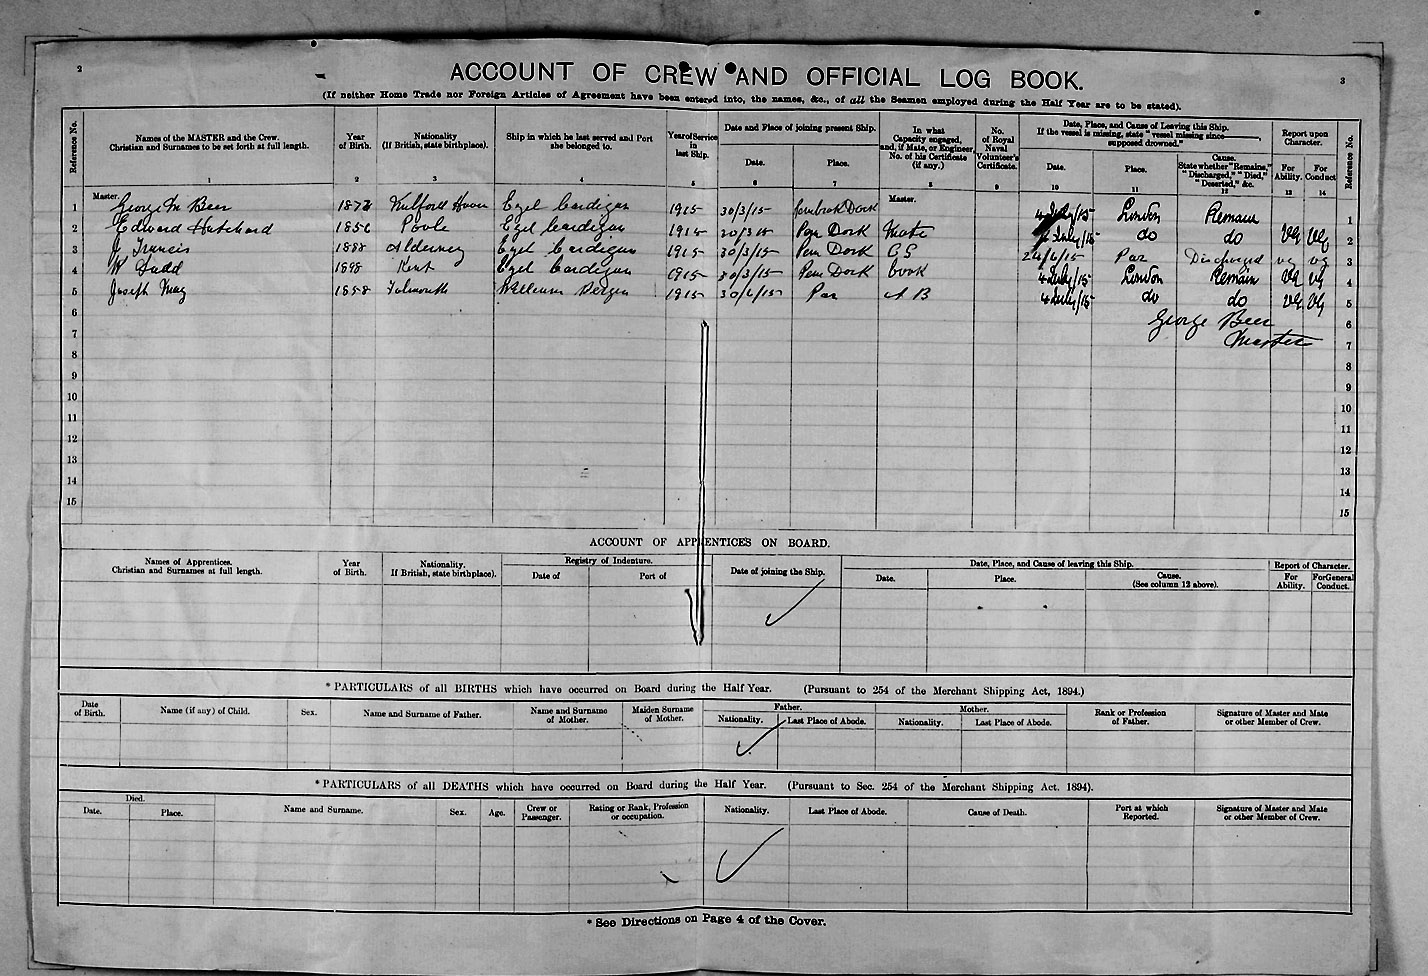 2
3
ACCOUNT OF CREW AND OFFICIAL LOG BOOK.
(If neither Home Trade nor Foreign Articles of Agreement have been entered into, the names, &c., of all the Seamen employed during the Half Year are to be stated).
Reference No. Names of the MASTER and the Crew. Christian and Surnames to be set forth at full length. Year of Birth. Nationality (If British, state birthplace). Ship in which he last served and Port she belonged to. Year of Service in last Ship. Date and Place of joining present Ship. Date. Place. In what Capacity engaged, and, if Mate, or Engineer, No. of his Certificate (if any.) No. of Royal Naval Volunteer's Certificate. Date, Place, and Cause of Leaving this Ship. If the vessel is missing, state "vessel missing since supposed drowned." Date. Place. Cause. State whether "Remains," "Discharged," "Died," "Deserted," &c. Report upon Character. For Ability. For Conduct Reference No.
1 2 3 4 5 6 7 8 9 10 11 12 13 14
Master. Master.
1 George M Beer 1872 Milford Haven Ezel Cardigan 1915 30/3/15 Pembroke Dock 4 July/15 London Remain 1
2 Edward Hutchard Poole Ezel Cardigan 1915 30/3/15 Pem Dock Mate 4 July/15 do do VG VG 2
3 J Francis 1888 Alderney Ezel Cardigan 1915 30/3/15 Pem Dock 24/6/15 Par Discharged VG VG 3
4 W Judd 1898 Kent Ezel Cardigan 1915 30/3/15 Pem Dock Cook 4 July/15 London Remain VG VG 4
5 Joseph May 1858 Falmouth William 1915 30/6/15 Par A B 4 July/15 do do VG VG 5
6 George Beer 6
7 Master 7
8 8
9 9
10 10
11 11
12 12
13 13
14 14
15 15
ACCOUNT OF APPRENTICES ON BOARD.
Names of Apprentices. Christian and Surnames at full length. Year of Birth. Nationality. If British, state birthplace). Registry of Indenture. Date of Port of Date of joining the Ship. Date, Place, and Cause of leaving this Ship. Date. Place. Cause. (See column 12 above). Report of Character. For Ability. For General Conduct.
* PARTICULARS of all BIRTHS which have occurred on Board during the Half Year. (Pursuant to 254 of the Merchant Shipping Act, 1894.)
Date of Birth. Name (if any) of Child. Sex. Name and Surname of Father. Name and Surname of Mother. Maiden Surname of Mother. Father. Nationality. Last Place of Abode. Mother. Nationality. Last Place of Abode. Rank or Profession of Father. Signature of Master and Mate or other Member of Crew.
* PARTICULARS of all DEATHS which have occurred on Board during the Half Year. (Pursuant to Sec. 254 of the Merchant Shipping Act. 1894).
Died. Date. Place. Name and Surname. Sex. Age. Crew or Passenger. Rating or Rank, Profession or occupation. Nationality. Last Place of Abode. Cause of Death. Port at which Reported. Signature of Master and Mate or other Member of Crew.
* See Directions on Page 4 of the Cover.